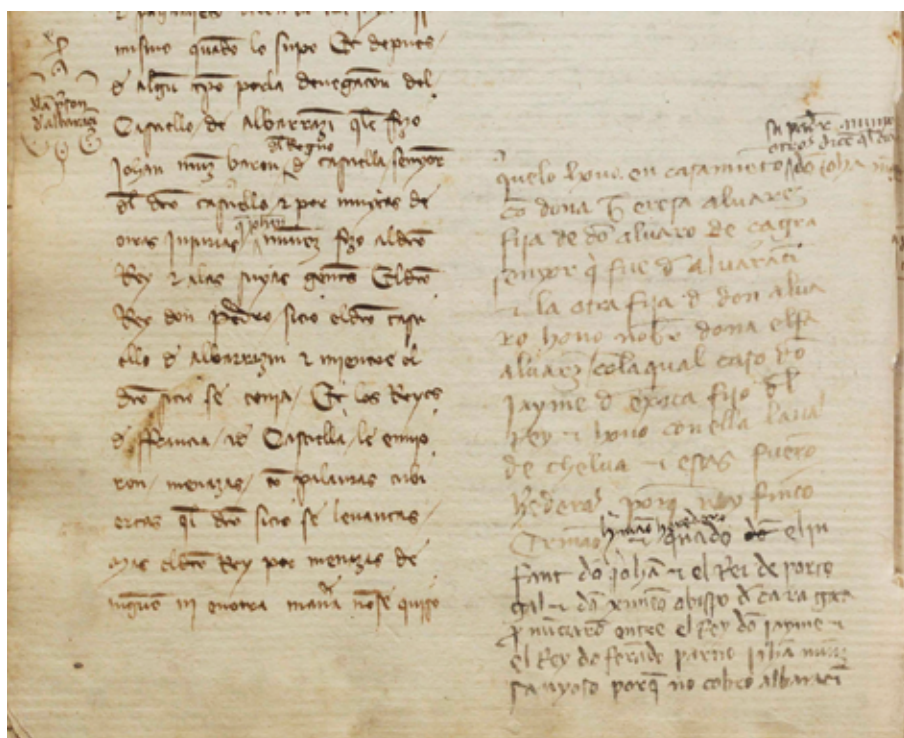 mismo quando lo supo Et depues
d algun tpo por la denegacon del
Castiello de albarrazi q̅ le fizo
del Regno
Johan nunz baron d castiella senyor
dl dto castiello z por muytas de
q̅ johan
otras injurias nunez fizo al dto
Rey z a las suyas gentes El dto
Rey don Pedro sitio el dto casti
ello d albarrazin z mientre el
dto sitio se tenia Et los Reyes
d Francia z d Castiella le embia
ron menazas co palauras cubi
ertas q̅l dto sitio se leuantas
mas el dto Rey por menazas de
ninguno ni en otra manera no se quiso
dalbarazi
su padre
otros dice
quelo houo en casamiento do joha
co dona Teresa aluarez
fija de do aluaro de cagra
senyor q̅ fue d aluarazi
z la otra fija d don alua
ro houo nobre dona elfa
aluarz co la qual caso do
Jayme d exerica fijo dl
rey z houo con ella la ual
de chelua z estas fuero
hederas porq̅ no y finco
hermano heredero
z quado el in
fant do joha z el Rei de porto
gal z do ximeno obispo d caragoca
p̅ nuciaro entre el Rey do jayme z
el Rey do ferado partio joha nunz
sanyoso porq̅ no cobro albarazi